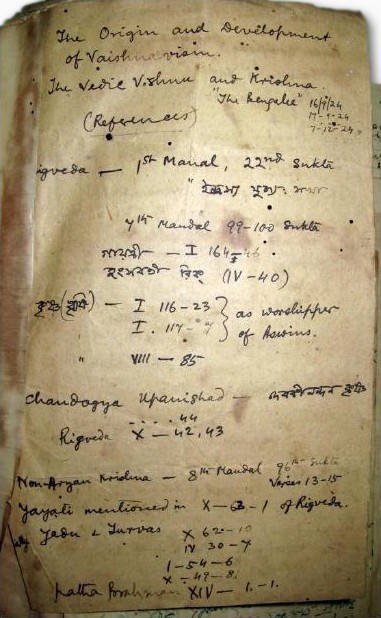 The Origin and Development
of Vaishnavism.
The Vedic Vishnu and Krishna.
"The Bengalee" 16/9/24
17-9-24
7-12-24
(References)
Rigveda — 1st Manal, 22nd Sukta
7th Mandal 99-100 Sukta
গায়ত্রী — I 164-46
হংসবতী ঋক্ (IV-40)
কৃষ্ণ (ঋষি) — I 116-23 } as worshipper
I. 117-7 } of Aswins.
" VIII — 85
Chandogya Upanishad — দেবকীনন্দন কৃষ্ণ
Rigveda X — 42, 43
44
Non-Aryan Krishna — 8th Mandal 96th Sukta
Verses 13-15
Yayati mentioned in X-63-1 of Rigveda.
Jadu & Turvas X 62-10
IV 30-7
1-54-6
X-49-8.
Satha Brahman XIV — 1.-1.